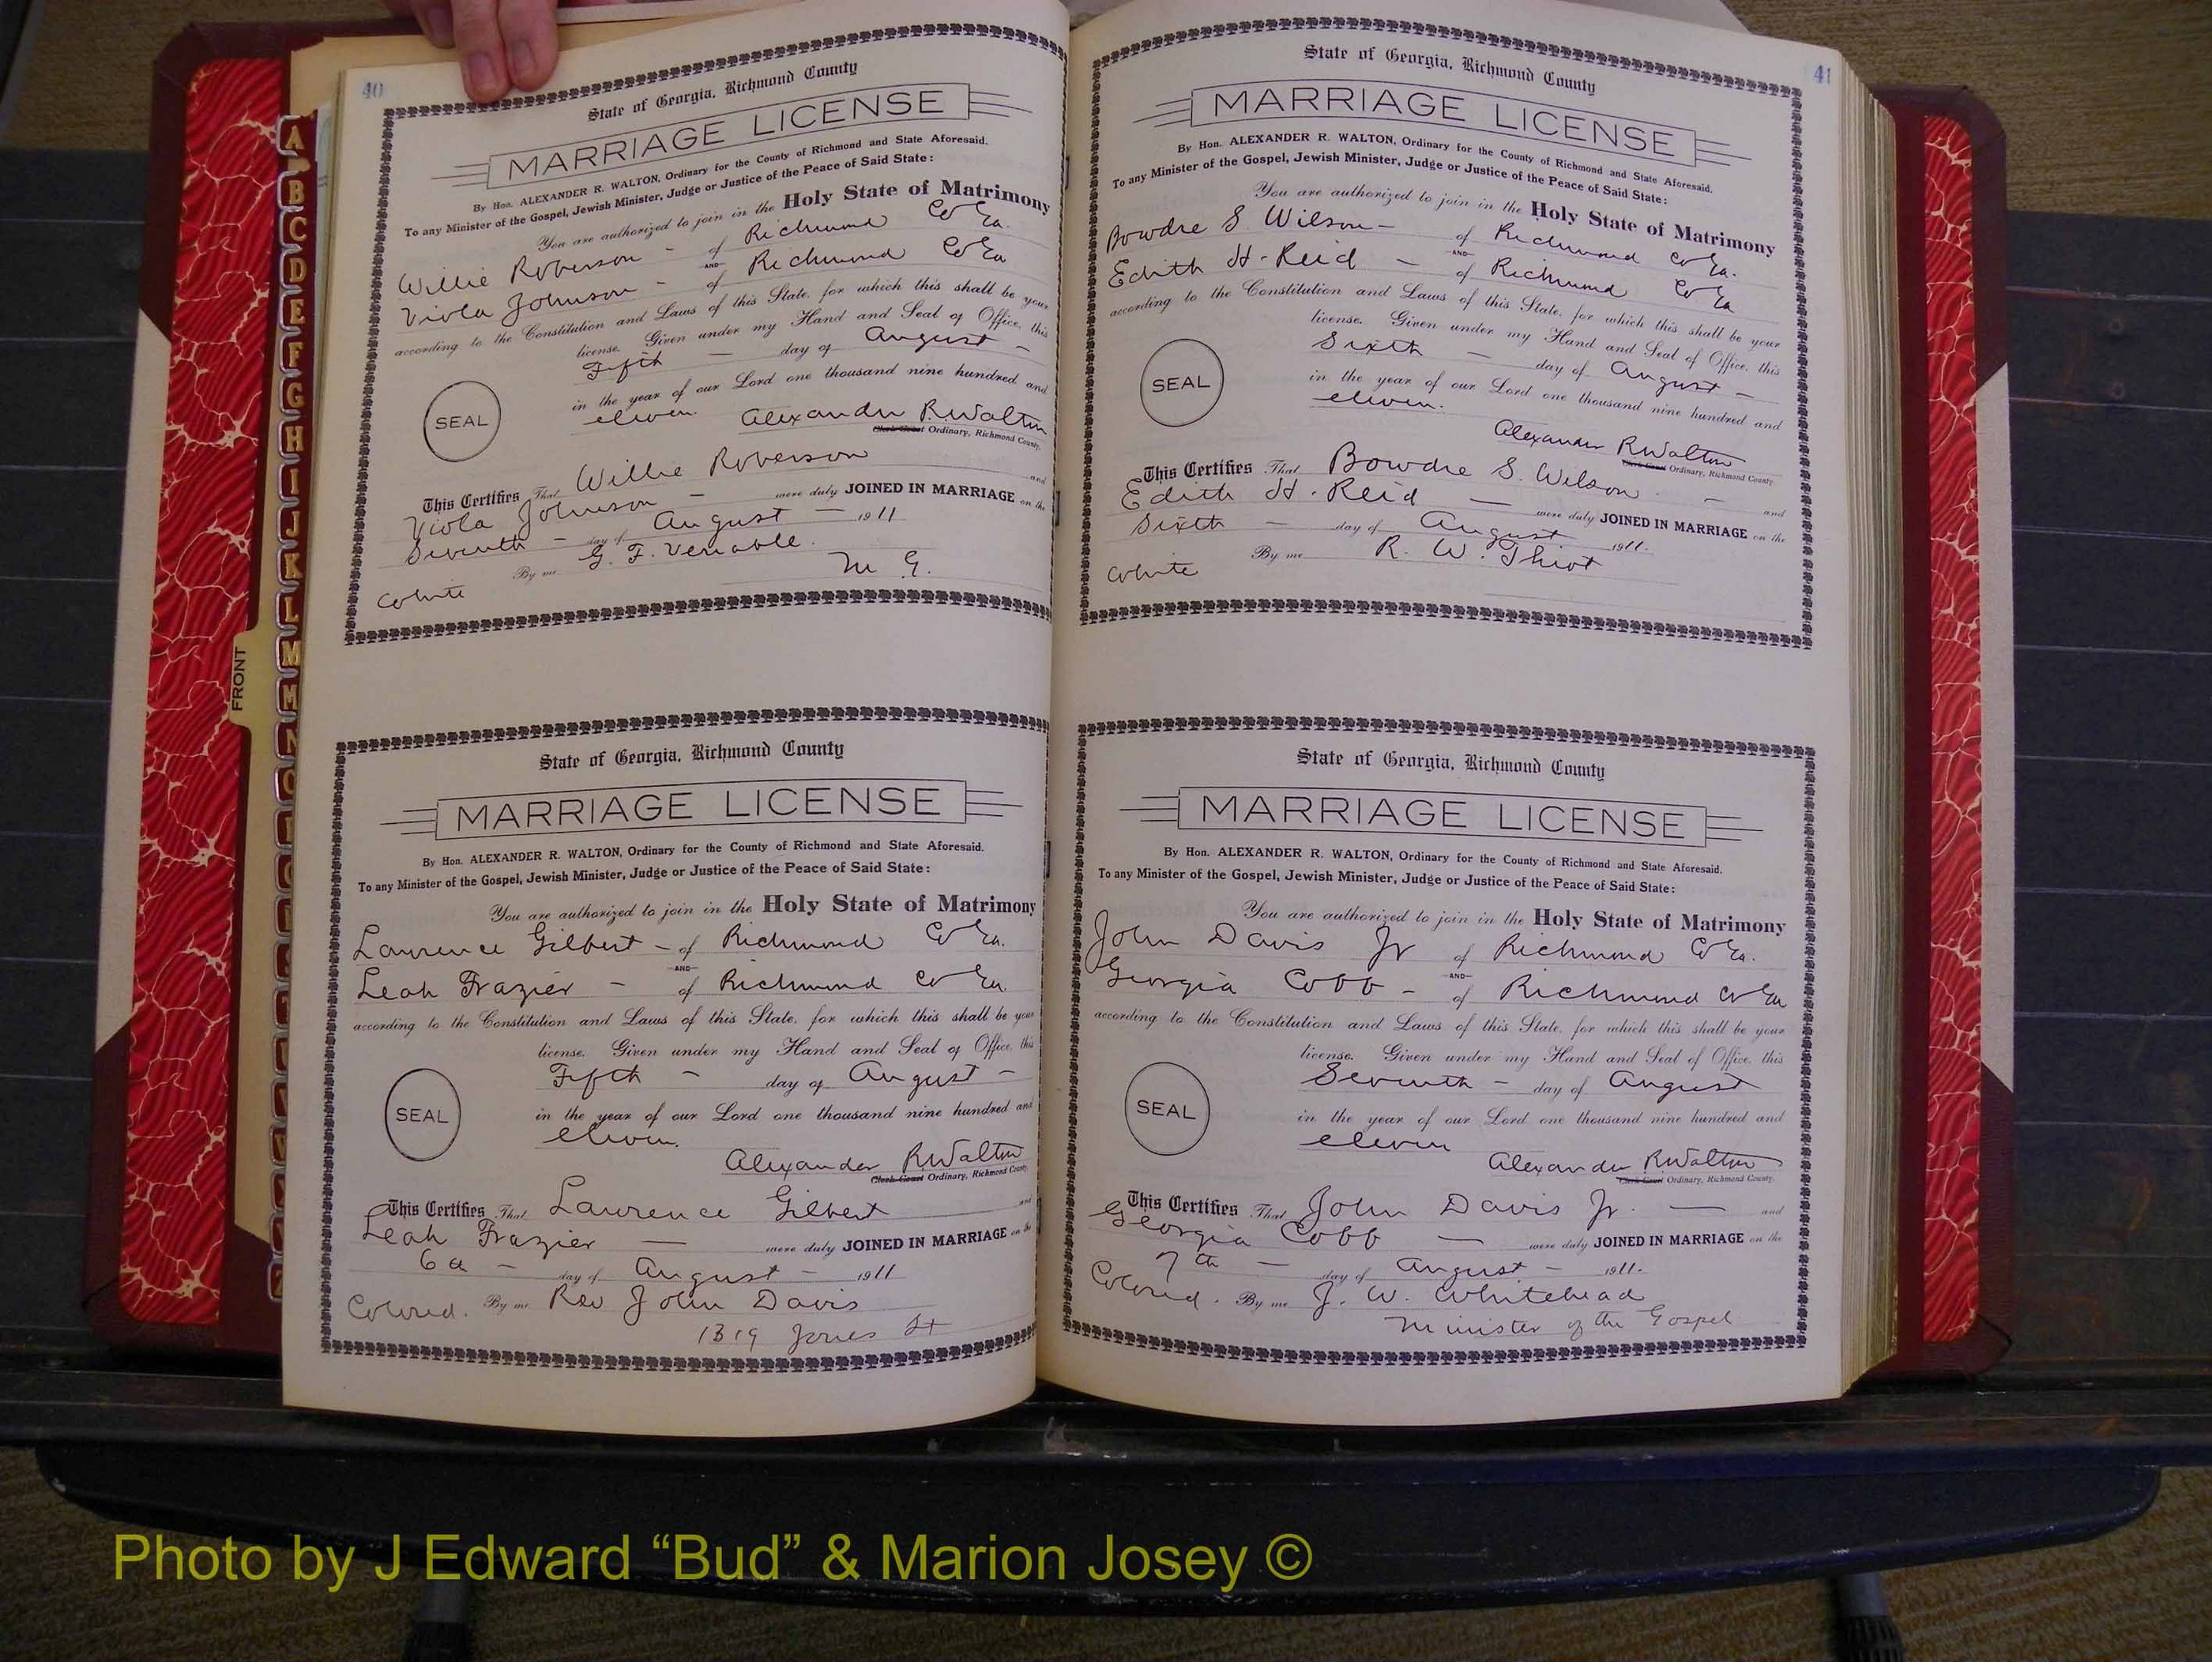 40
State of Georgia, Richmond County
MARRIAGE LICENSE
By Hon. ALEXANDER R. WALTON, Ordinary for the County of Richmond and State Aforesaid.
To any Minister of the Gospel, Jewish Minister, Judge or Justice of the Peace of Said State:
You are authorized to join in the Holy State of Matrimony
Willie Roberson - of Richmond Co Ga.
AND
Viola Johnson - of Richmond Co Ga
according to the Constitution and Laws of this State, for which this shall be your
license. Given under my Hand and Seal of Office, this
Fifth - day of August -
in the year of our Lord one thousand nine hundred and
eleven.
SEAL
Alexander R. Walton
Clerk Court Ordinary, Richmond County.
This Certifies That Willie Roberson and
Viola Johnson - were duly JOINED IN MARRIAGE on the
Seventh - day of August - 1911
By me G. F. Venable.
M G.
White
State of Georgia, Richmond County
MARRIAGE LICENSE
By Hon. ALEXANDER R. WALTON, Ordinary for the County of Richmond and State Aforesaid.
To any Minister of the Gospel, Jewish Minister, Judge or Justice of the Peace of Said State:
You are authorized to join in the Holy State of Matrimony
Lawrence Gilbert - of Richmond Co Ga.
AND
Leah Frazier - of Richmond Co Ga.
according to the Constitution and Laws of this State, for which this shall be your
license. Given under my Hand and Seal of Office, this
Fifth - day of August -
SEAL
in the year of our Lord one thousand nine hundred and
eleven.
Alexander R. Walton
Clerk Court Ordinary, Richmond County.
This Certifies That Lawrence Gilbert and
Leah Frazier - were duly JOINED IN MARRIAGE on the
6th - day of August - 1911
Colored. By me Rev John Davis
1319 Jones St
41
State of Georgia, Richmond County
MARRIAGE LICENSE
By Hon. ALEXANDER R. WALTON, Ordinary for the County of Richmond and State Aforesaid.
To any Minister of the Gospel, Jewish Minister, Judge or Justice of the Peace of Said State:
You are authorized to join in the Holy State of Matrimony
Bowdre S. Wilson - of Richmond Co Ga.
AND
Edith H. Reid - of Richmond Co Ga
according to the Constitution and Laws of this State, for which this shall be your
license. Given under my Hand and Seal of Office, this
Sixth - day of August -
SEAL
in the year of our Lord one thousand nine hundred and
eleven.
Alexander R. Walton
Clerk Court Ordinary, Richmond County.
This Certifies That Bowdre S. Wilson - and
Edith H. Reid - were duly JOINED IN MARRIAGE on the
Sixth - day of August 1911.
By me R. W. Thiot
White
State of Georgia, Richmond County
MARRIAGE LICENSE
By Hon. ALEXANDER R. WALTON, Ordinary for the County of Richmond and State Aforesaid.
To any Minister of the Gospel, Jewish Minister, Judge or Justice of the Peace of Said State:
You are authorized to join in the Holy State of Matrimony
John Davis Jr of Richmond Co Ga.
AND
Georgia Cobb - of Richmond Co Ga
according to the Constitution and Laws of this State, for which this shall be your
license. Given under my Hand and Seal of Office, this
Seventh - day of August
SEAL
in the year of our Lord one thousand nine hundred and
eleven
Alexander R. Walton
Clerk Court Ordinary, Richmond County.
This Certifies That John Davis Jr. - and
Georgia Cobb - were duly JOINED IN MARRIAGE on the
7th - day of August - 1911.
Colored. By me J. W. Whitehead
Minister of the Gospel
FRONT
A
B
C
D
E
F
G
H
I
J
K
L
M
M
N
Photo by J Edward “Bud” & Marion Josey ©